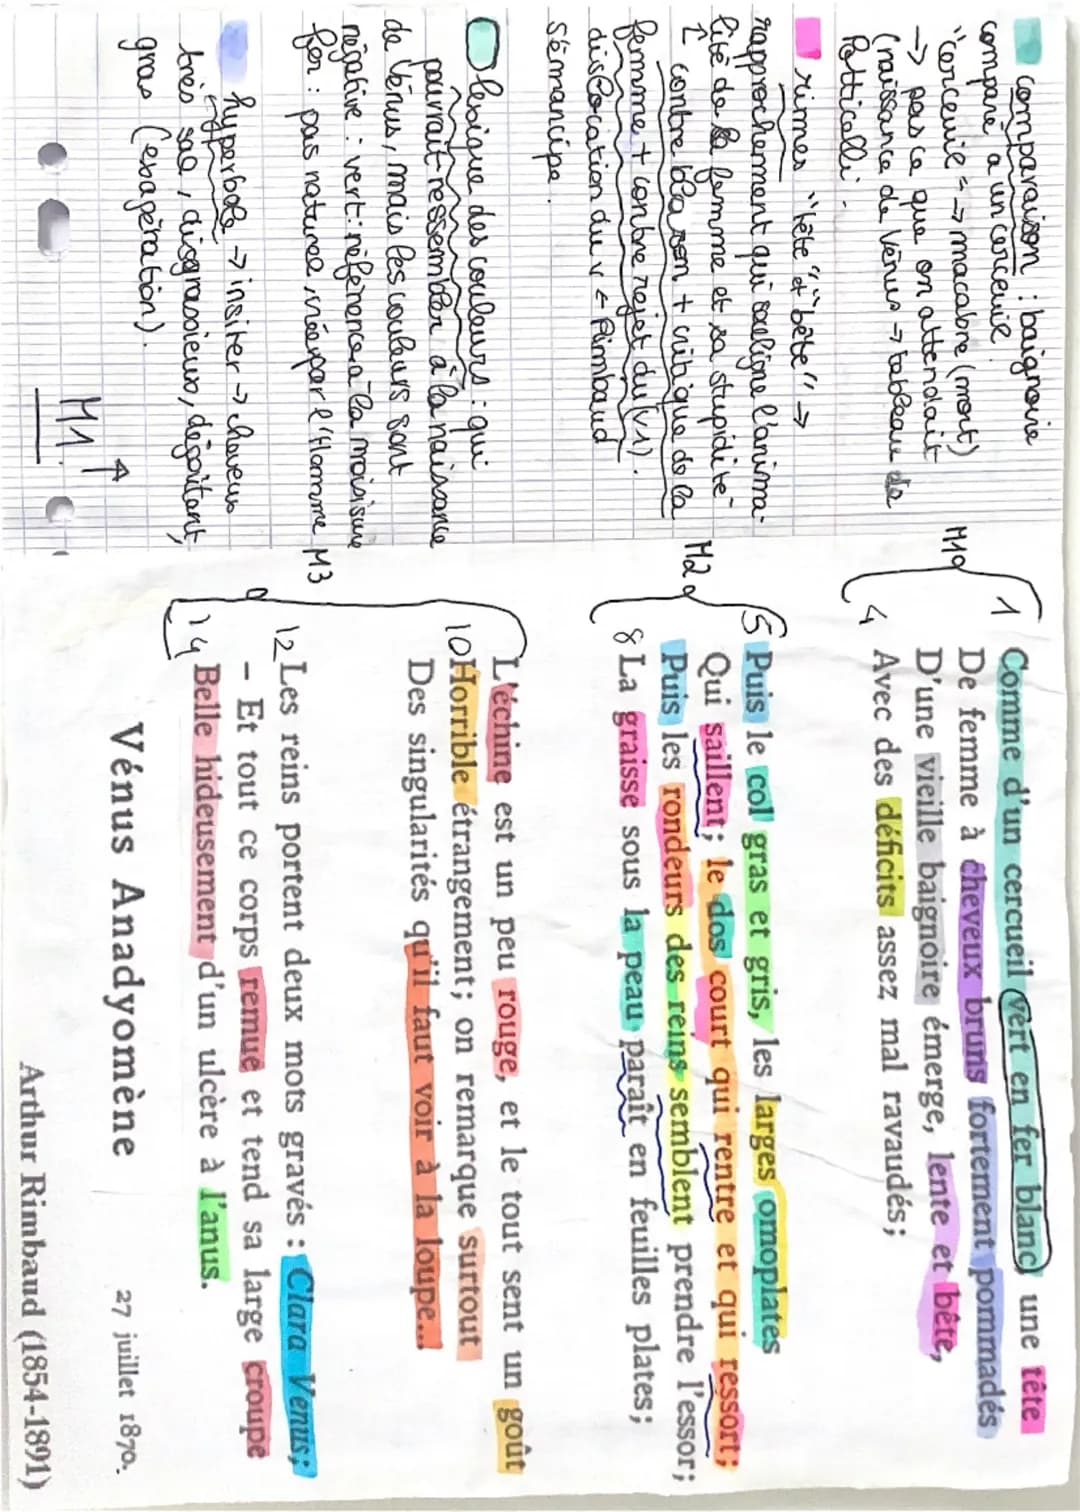 comparaison : baignoire
comparé a un cerceuil
"cerceuil = → macabre (mort)
→ pas ce que on attendait
(naissance de Vénus → tableau de
Botticelli.
rimes "tête" et "bête" →
rapprochement qui souligne l'anima-
lité de la femme et sa stupidité
↳ contre blason + critique de la
femme + contre rejet du (v1).
dislocation du v ← Rimbaud
s'émancipe.
lexique des couleurs : qui
pourrait ressembler à la naissance
de Vénus, mais les couleurs sont
négative : vert : référence à la moisissure
fer : pas naturel, créé par l'Homme
hyperbole → insiter → cheveux
très sale, disgrassieux, dégoitant,
gras (exagération).
M1 ↑
M1
1 Comme d'un cercueil vert en fer blanc, une tête
De femme à cheveux bruns fortement pommadés
D'une vieille baignoire émerge, lente et bête,
4 Avec des déficits assez mal ravaudés;
M2
5 Puis le col gras et gris, les larges omoplates
Qui saillent; le dos court qui rentre et qui ressort;
Puis les rondeurs des reins semblent prendre l'essor;
8 La graisse sous la peau paraît en feuilles plates;
M3
L'échine est un peu rouge, et le tout sent un goût
10 Horrible étrangement; on remarque surtout
Des singularités qu'il faut voir à la loupe...
12 Les reins portent deux mots gravés : Clara Venus;
– Et tout ce corps remue et tend sa large croupe
14 Belle hideusement d'un ulcère à l'anus.
Vénus Anadyomène
27 juillet 1870.
Arthur Rimbaud (1854-1891)